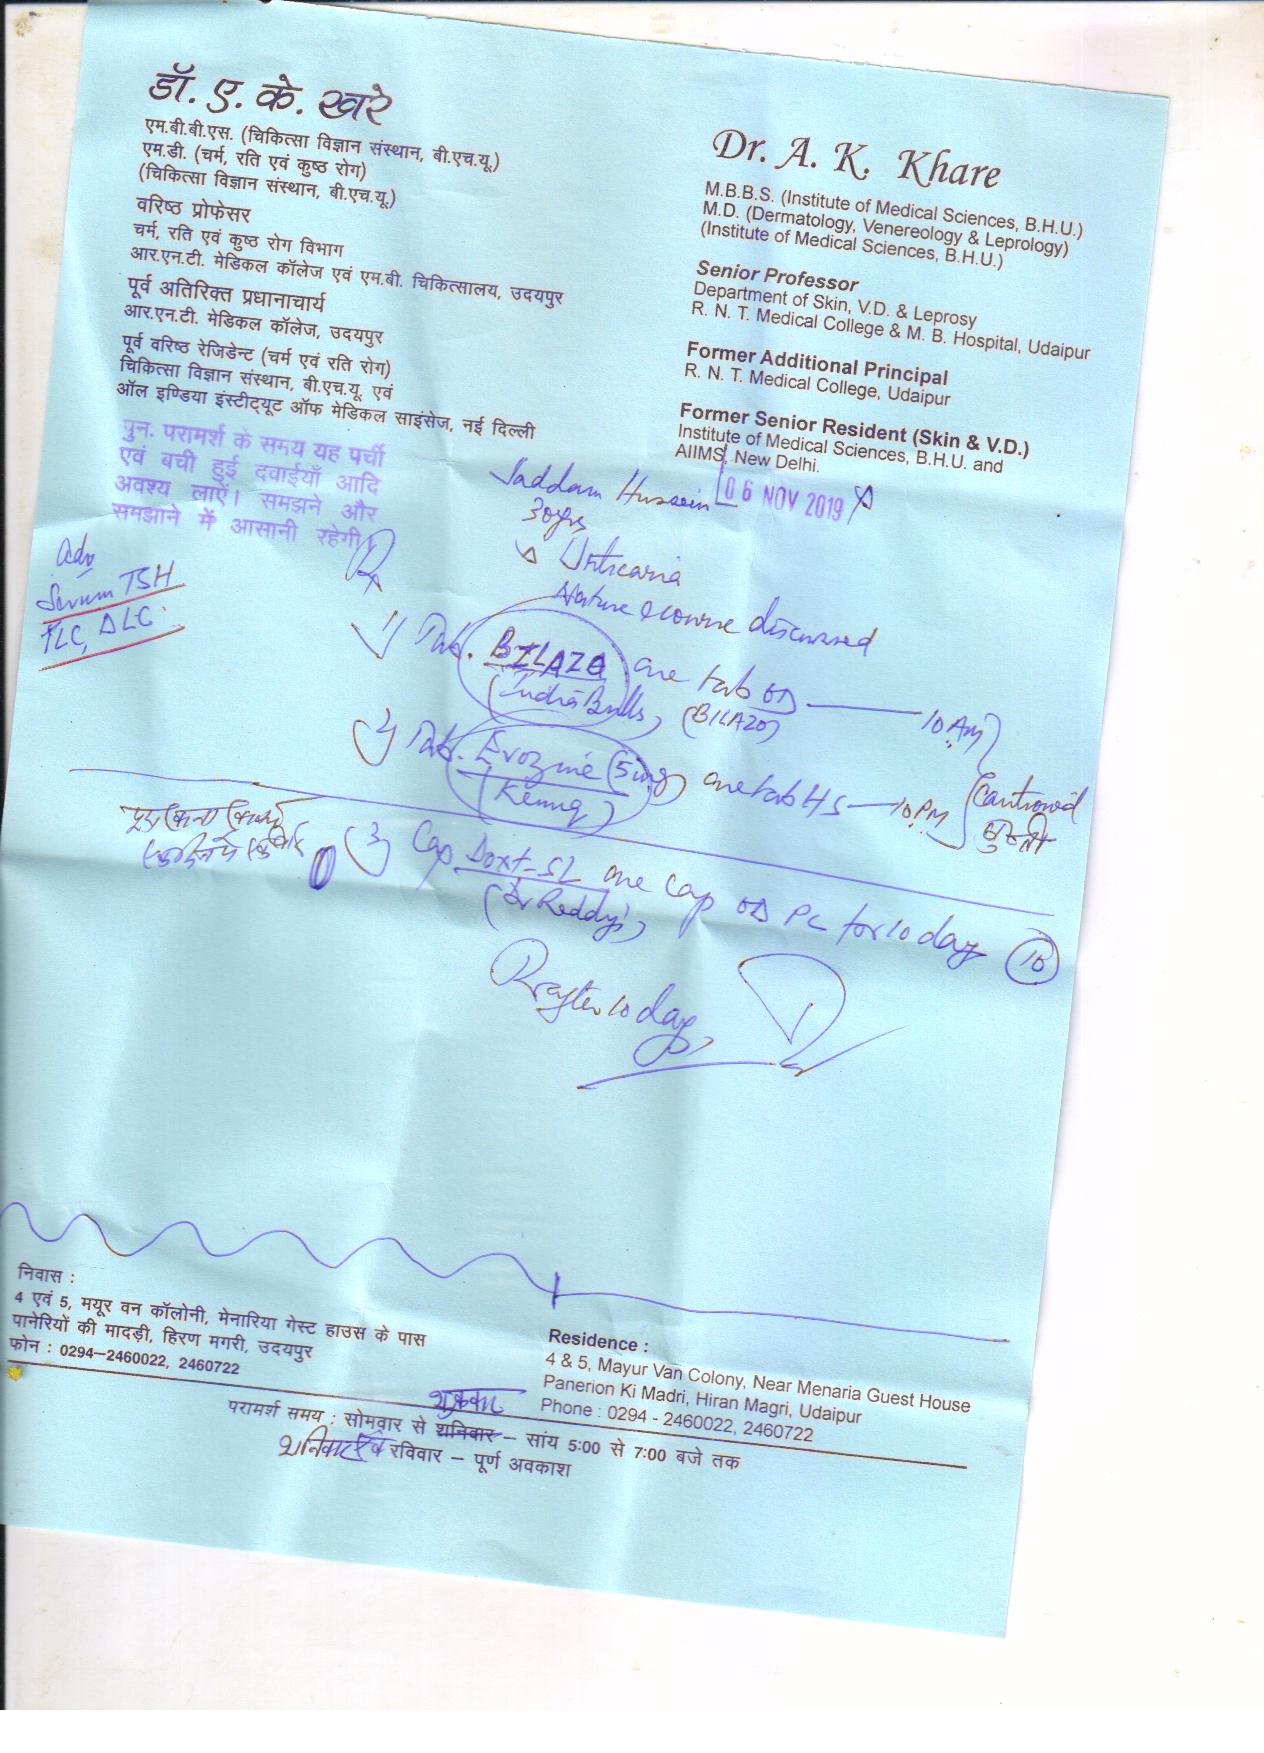 डॉ. ए. के. खरे
एम.बी.बी.एस. (चिकित्सा विज्ञान संस्थान, बी.एच.यू.)
एम.डी. (चर्म, रति एवं कुष्ठ रोग)
(चिकित्सा विज्ञान संस्थान, बी.एच.यू.)
वरिष्ठ प्रोफेसर
चर्म, रति एवं कुष्ठ रोग विभाग
आर.एन.टी. मेडिकल कॉलेज एवं एम.बी. चिकित्सालय, उदयपुर
पूर्व अतिरिक्त प्रधानाचार्य
आर.एन.टी. मेडिकल कॉलेज, उदयपुर
पूर्व वरिष्ठ रेजिडेन्ट (चर्म एवं रति रोग)
चिकित्सा विज्ञान संस्थान, बी.एच.यू. एवं
ऑल इण्डिया इंस्टीट्यूट ऑफ मेडिकल साइंसेज, नई दिल्ली
पुन. परामर्श के समय यह पर्ची
एवं बची हुई दवाईयाँ आदि
अवश्य लाऐं। समझने और
समझाने में आसानी रहेगी।
Dr. A. K. Khare
M.B.B.S. (Institute of Medical Sciences, B.H.U.)
M.D. (Dermatology, Venereology & Leprology)
(Institute of Medical Sciences, B.H.U.)
Senior Professor
Department of Skin, V.D. & Leprosy
R. N. T. Medical College & M. B. Hospital, Udaipur
Former Additional Principal
R. N. T. Medical College, Udaipur
Former Senior Resident (Skin & V.D.)
Institute of Medical Sciences, B.H.U. and
AIIMS, New Delhi.
Saddam Hussein 06 NOV 2019
30yrs
Δ Urticaria
Nature & course discussed
Adv
Serum TSH
TLC, DLC
Rx
1) Tab. BILAZO one tab OD — 10 AM
(India Bulls) (BILAZO)
2) Tab. Evozine (5mg) one tab HS — 10 PM
(Kenng)
3) Cap Doxt-SL one cap OD PC for 10 days (10)
(Dr Reddy's)
R after 10 days
निवास :
4 एवं 5, मयूर वन कॉलोनी, मेनारिया गेस्ट हाउस के पास
पानेरियों की मादड़ी, हिरण मगरी, उदयपुर
फोन : 0294–2460022, 2460722
Residence :
4 & 5, Mayur Van Colony, Near Menaria Guest House
Panerion Ki Madri, Hiran Magri, Udaipur
Phone : 0294 - 2460022, 2460722
शुक्रवार
परामर्श समय : सोमवार से शनिवार – सांय 5:00 से 7:00 बजे तक
शनिवार एवं रविवार – पूर्ण अवकाश